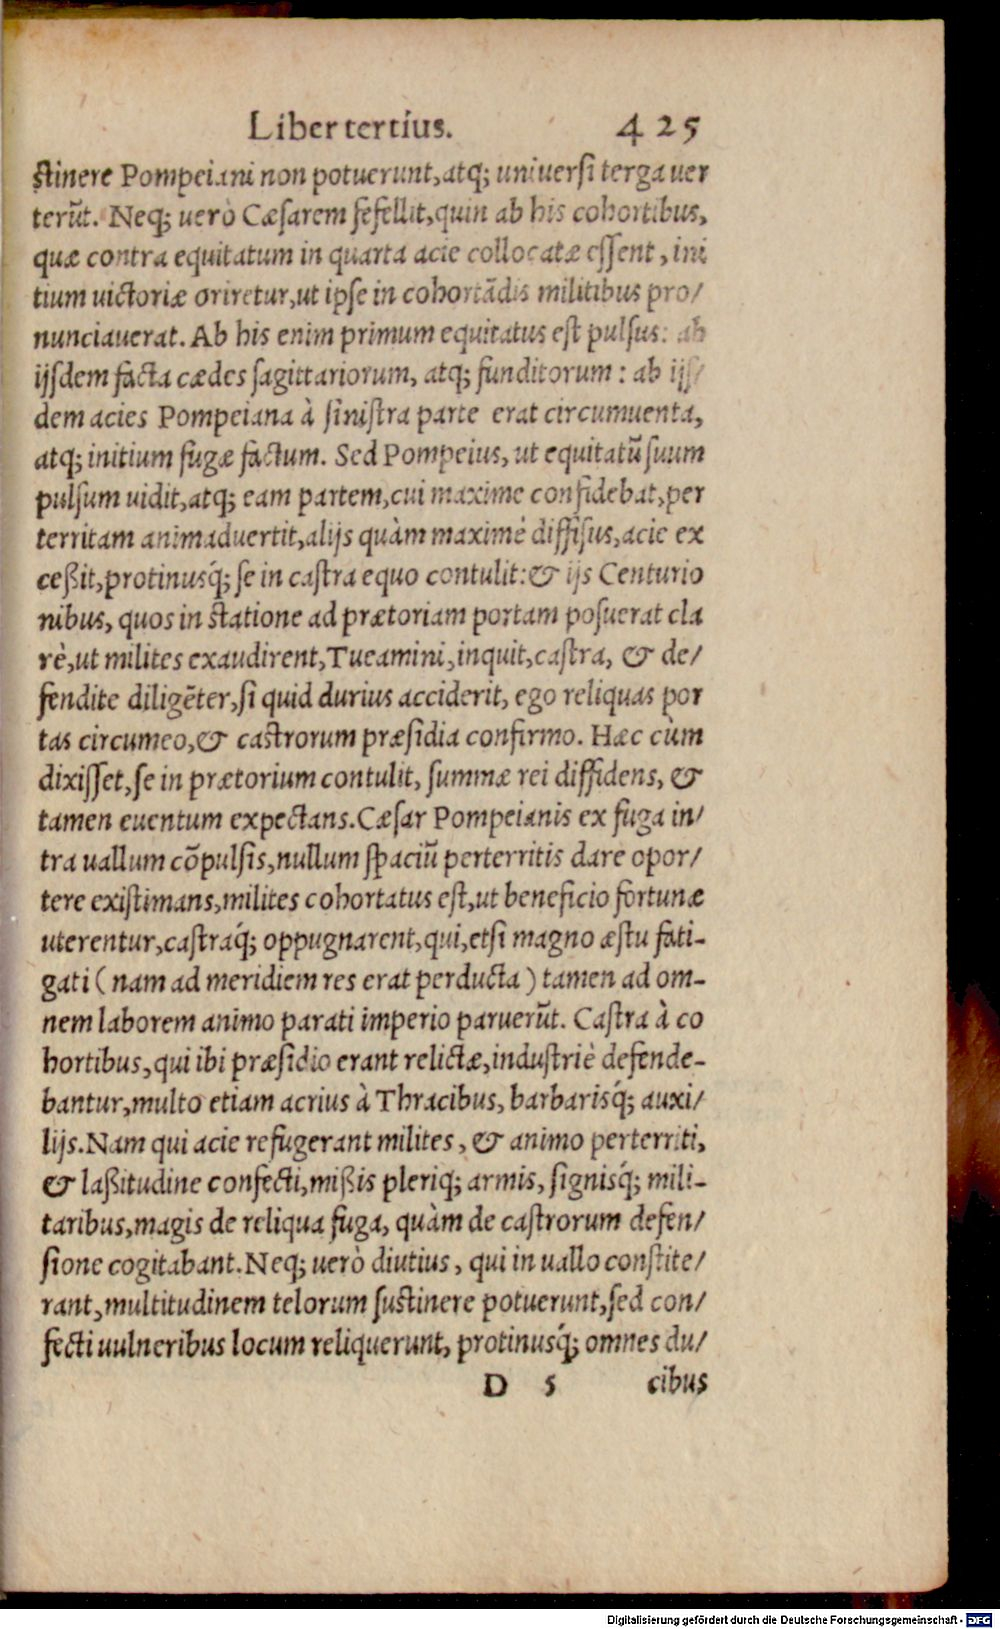 Liber tertius. 425
stinere Pompeiani non potuerunt, atq; uniuersi terga uer
terũt. Neq; uerò Cæsarem fefellit, quin ab his cohortibus,
quæ contra equitatum in quarta acie collocatæ essent, ini
tium uictoriæ oriretur, ut ipse in cohortãdis militibus pro/
nunciauerat. Ab his enim primum equitatus est pulsus: ab
ijsdem facta cædes sagittariorum, atq; funditorum: ab ijs/
dem acies Pompeiana à sinistra parte erat circumuenta,
atq; initium fugæ factum. Sed Pompeius, ut equitatũ suum
pulsum uidit, atq; eam partem, cui maxime confidebat, per
territam animaduertit, alijs quàm maximè diffisus, acie ex
ceßit, protinusq́; se in castra equo contulit: & ijs Centurio
nibus, quos in statione ad prætoriam portam posuerat cla
rè, ut milites exaudirent, Tueamini, inquit, castra, & de/
fendite diligẽter, si quid durius acciderit, ego reliquas por
tas circumeo, & castrorum præsidia confirmo. Hæc cùm
dixisset, se in prætorium contulit, summæ rei diffidens, &
tamen euentum expectans. Cæsar Pompeianis ex fuga in/
tra uallum cõpulsis, nullum spaciũ perterritis dare opor/
tere existimans, milites cohortatus est, ut beneficio fortunæ
uterentur, castraq́; oppugnarent, qui, etsi magno æstu fati-
gati (nam ad meridiem res erat perducta) tamen ad om-
nem laborem animo parati imperio paruerũt. Castra à co
hortibus, qui ibi præsidio erant relictæ, industriè defende-
bantur, multo etiam acrius à Thracibus, barbarisq́; auxi/
lijs. Nam qui acie refugerant milites, & animo perterriti,
& laßitudine confecti, mißis pleriq; armis, signisq́; mili-
taribus, magis de reliqua fuga, quàm de castrorum defen/
sione cogitabant. Neq; uerò diutius, qui in uallo constite/
rant, multitudinem telorum sustinere potuerunt, sed con/
fecti uulneribus locum reliquerunt, protinusq́; omnes du/
D 5 cibus
Digitalisierung gefördert durch die Deutsche Forschungsgemeinschaft - DFG